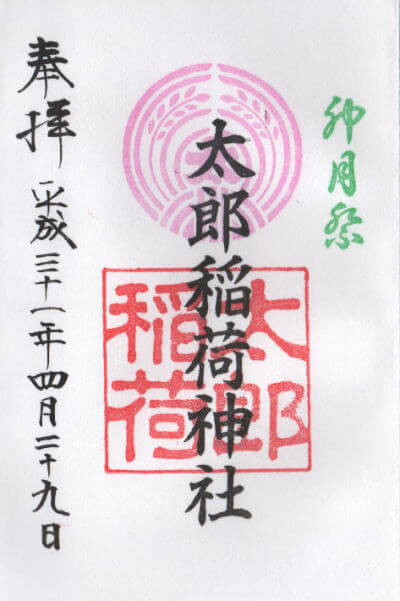 卯月祭
太郎稲荷神社
太郎
稲荷
奉拝
平成三十一年四月二十九日